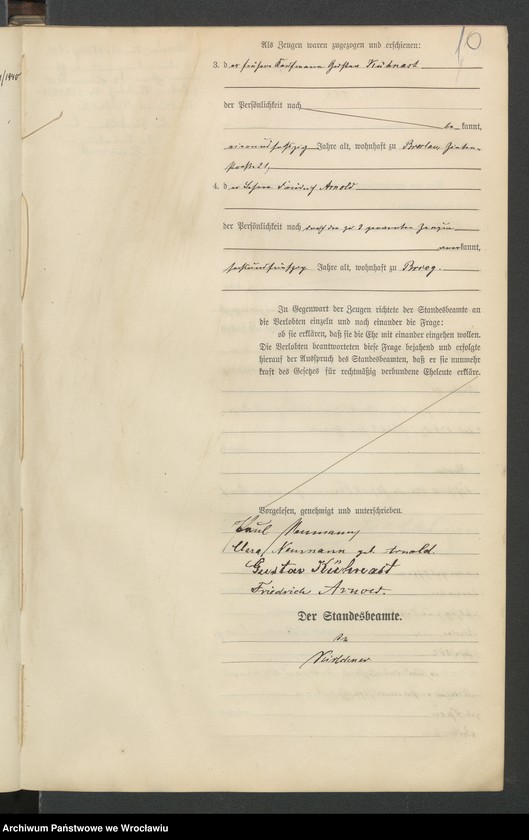 10
Als Zeugen waren zugezogen und erschienen:
3. der frühere Kaufmann Gustav Kühnast
der Persönlichkeit nach
be kannt,
Jahre alt, wohnhaft zu Breslau,
straße 21,
4. der Friedrich Arnold
der Persönlichkeit nach durch den zu 3 genannten Zeugen
anerkannt,
Jahre alt, wohnhaft zu Brieg.
In Gegenwart der Zeugen richtete der Standesbeamte an
die Verlobten einzeln und nach einander die Frage:
ob sie erklären, daß sie die Ehe mit einander eingehen wollen.
Die Verlobten beantworteten diese Frage bejahend und erfolgte
hierauf der Ausspruch des Standesbeamten, daß er sie nunmehr
kraft des Gesetzes für rechtmäßig verbundene Eheleute erkläre.
Vorgelesen, genehmigt und unterschrieben.
Paul Neumann
Clara Neumann geb. Arnold.
Gustav Kühnast
Friedrich Arnold.
Der Standesbeamte.
Archiwum Państwowe we Wrocławiu